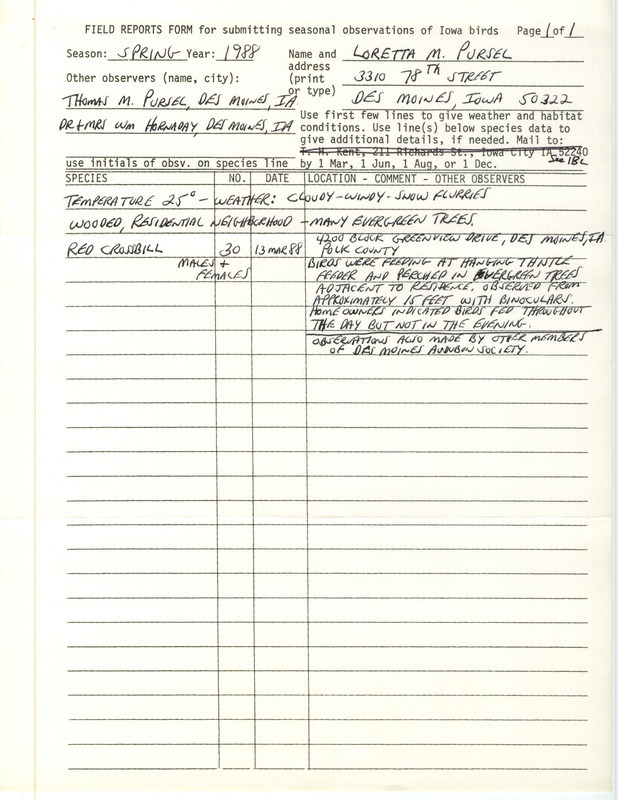 FIELD REPORTS FORM for submitting seasonal observations of Iowa birds Page 1 of 1
Season: SPRING Year: 1988 Name and LORETTA M. PURSEL
address 3310 78TH STREET
Other observers (name, city): (print
or type) DES MOINES, IOWA 50322
THOMAS M. PURSEL, DES MOINES, IA
DR + MRS WM HORNADAY, DES MOINES, IA
Use first few lines to give weather and habitat
conditions. Use line(s) below species data to
give additional details, if needed. Mail to:
T. H. Kent, 211 Richards St., Iowa City IA 52240
see IBL
use initials of obsv. on species line by 1 Mar, 1 Jun, 1 Aug, or 1 Dec.
SPECIES NO. DATE LOCATION - COMMENT - OTHER OBSERVERS
TEMPERATURE 25° - WEATHER: CLOUDY-WINDY-SNOW FLURRIES
WOODED, RESIDENTIAL NEIGHBORHOOD - MANY EVERGREEN TREES.
4200 BLOCK GREENVIEW DRIVE, DES MOINES, IA
RED CROSSBILL 30 13 MAR 88 POLK COUNTY
MALES + BIRDS WERE FEEDING AT HANGING THISTLE
FEMALES FEEDER AND PERCHED IN EVERGREEN TREES
ADJACENT TO RESIDENCE. OBSERVED FROM
APPROXIMATELY 15 FEET WITH BINOCULARS.
HOME OWNERS INDICATED BIRDS FED THROUGHOUT
THE DAY BUT NOT IN THE EVENING.
OBSERVATIONS ALSO MADE BY OTHER MEMBERS
OF DES MOINES AUDUBON SOCIETY.